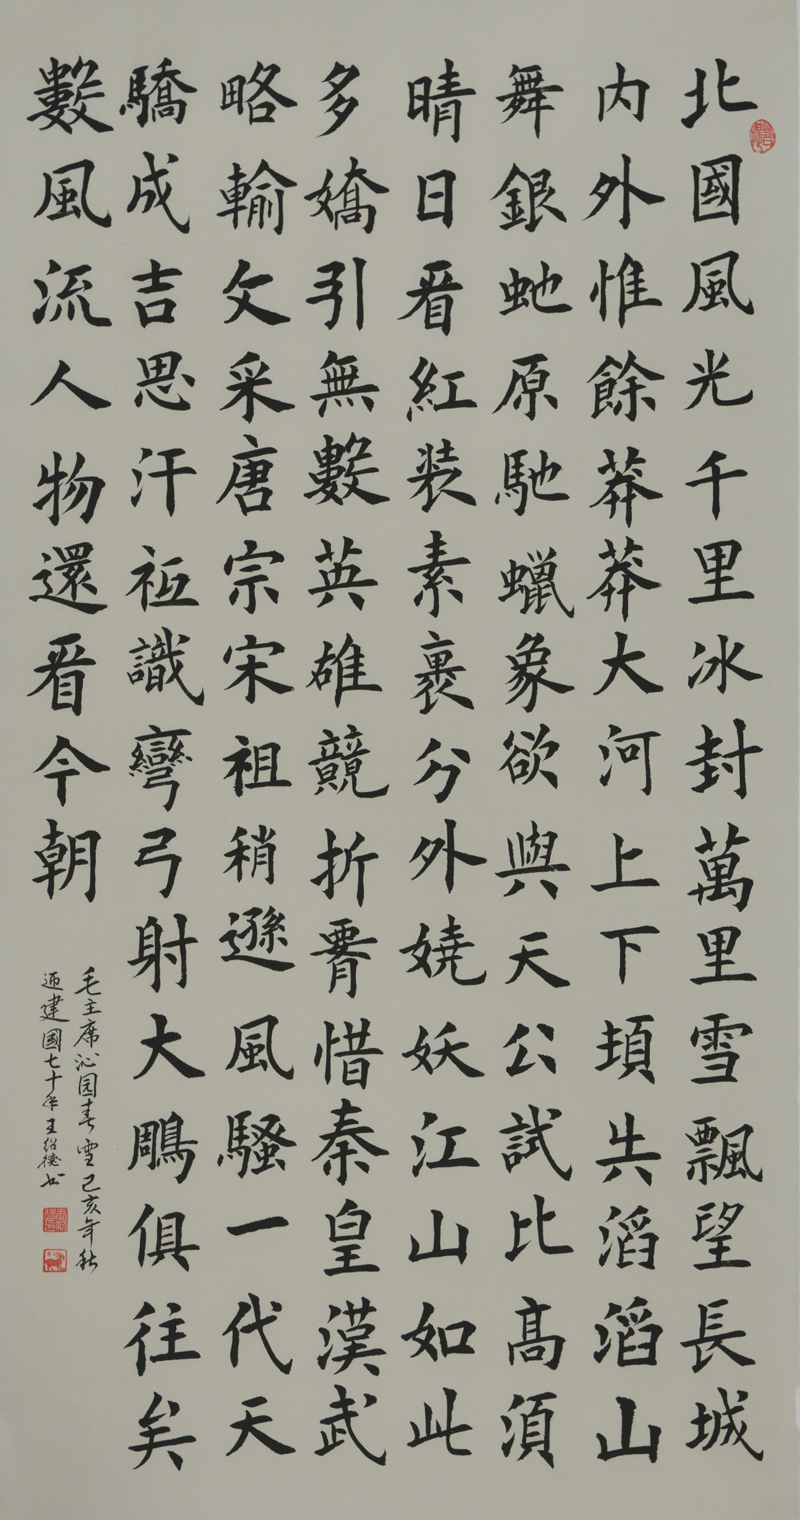 北國風光千里冰封萬里雪飄望長城
内外惟餘莽莽大河上下頓失滔滔山
舞銀虵原馳蠟象欲與天公試比髙須
晴日看紅装素裹分外嬈妖江山如此
多嬌引無數英雄競折腰惜秦皇漢武
略輸文采唐宗宋祖稍遜風騷一代天
驕成吉思汗祗識彎弓射大鵰俱往矣
數風流人物還看今朝
毛主席沁园春雪己亥年秋
迎建國七十年王绍德书